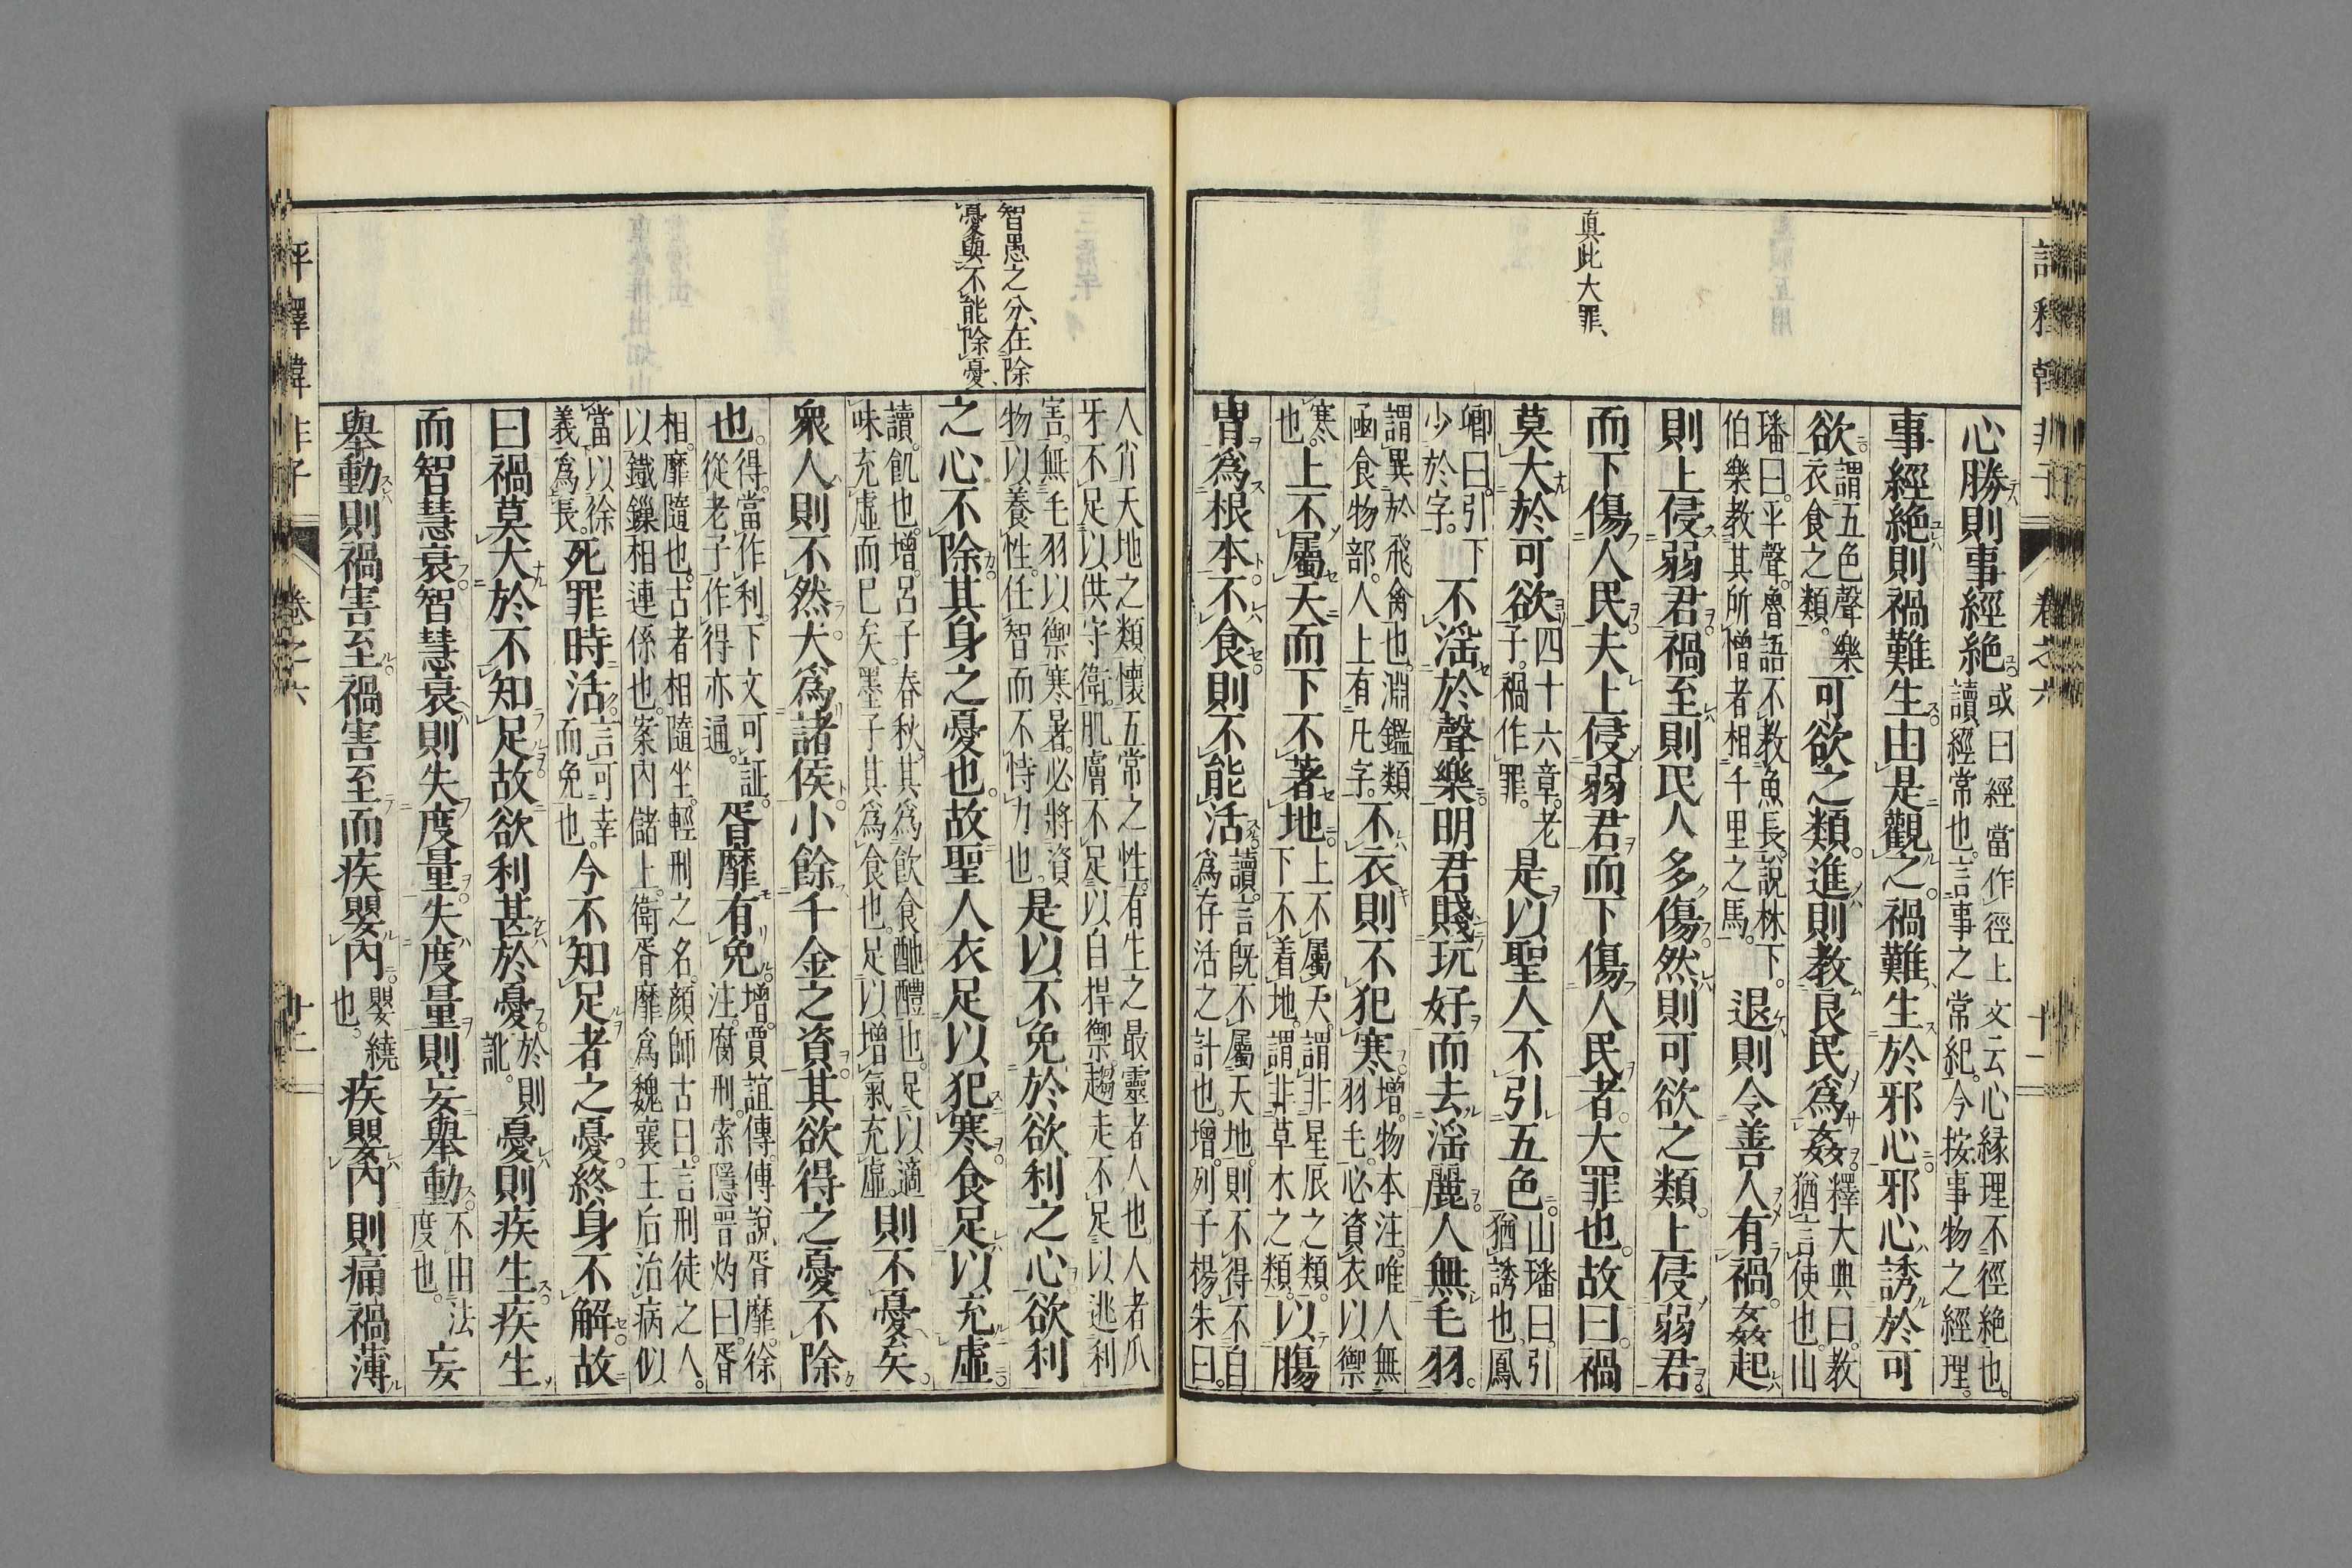 眞此大罪、
心勝則事經絶。或曰經當作徑上文云心緣理不徑絶也。
讀經常也。言事之常紀。今按事物之經理。
事經絶則禍難生。由是觀之。禍難生於邪心。邪心誘於可
欲。謂五色聲樂
衣食之類。可欲之類。進則教良民爲姦。釋大典曰。教
猶言使也。山
璠曰。平聲。魯語不教魚長。說林下。
伯樂教其所憎者相千里之馬。退則令善人有禍。姦起
則上侵弱君。禍至則民人多傷。然則可欲之類。上侵弱君。
而下傷人民。夫上侵弱君。而下傷人民者。大罪也。故曰。禍
莫大於可欲。四十六章。老
子。禍作罪。是以聖人不引五色。山璠曰。引
猶誘也。鳳
卿曰。引下
少於字。不淫於聲樂。明君賤玩好而去淫麗。人無毛羽。
謂異於飛禽也。淵鑑類
函食物部。人上有凡字。不衣則不犯寒。增。物本注。唯人無
羽毛。必資衣以禦
寒
也。上不屬天而下不著地。上不屬天。謂非星辰之類。
下不着地。謂非草木之類。以腸
胃爲根本。不食則不能活。讀。言既不屬天地。則不得不自
爲存活之計也。增。列子楊朱曰。
智愚之分、在除
憂與不能除憂、
人肖天地之類懷五常之性。有生之最靈者人也。人者爪
牙不足以供守衛。肌膚不足以自捍禦。趨走不足以逃利
害。無毛羽以禦寒暑。必將資
物以養性。任智而不恃力也。是以不免於欲利之心。欲利
之心不除其身之憂也。故聖人衣足以犯寒。食足以充虛。
讀。飢也。增。呂子春秋。其爲飲食酏醴也。足以適
味充虛而已矣。墨子其爲食也。足以增氣充虛。則不憂矣。
衆人則不然。大爲諸侯。小餘千金之資。其欲得之憂不除
也。得。當作利。下文可証。
從老子作得亦通。胥靡有免。增。賈誼傳。傳說胥靡。徐
注。腐刑。索隱晋灼曰。胥
相。靡隨也。古者相隨坐輕刑之名。顏師古曰。言刑徒之人。
以鐵鏁相連係也。案內儲上。衛胥靡爲魏襄王后治病似
當以徐
義爲長。死罪時活。言可幸
而免也。今不知足者之憂。終身不解。故
曰禍莫大於不知足。故欲利甚於憂。於則
訛。憂則疾生。疾生
而智慧衰。智慧衰則失度量。失度量則妄舉動。不由法
度也。妄
舉動則禍害至。禍害至而疾嬰內。嬰繞
也。疾嬰內則痛禍薄
評釋韓非子 卷之六 十二